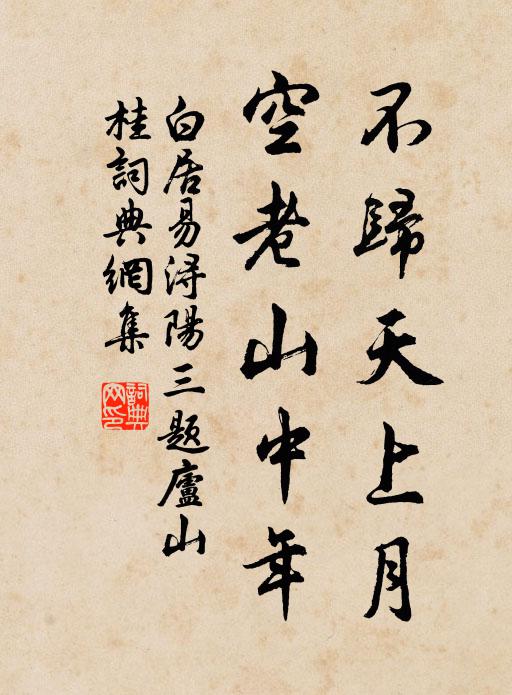 不歸天上月
空老山中年
白居易潯陽三题廬山
桂詞典網集
詞典网印